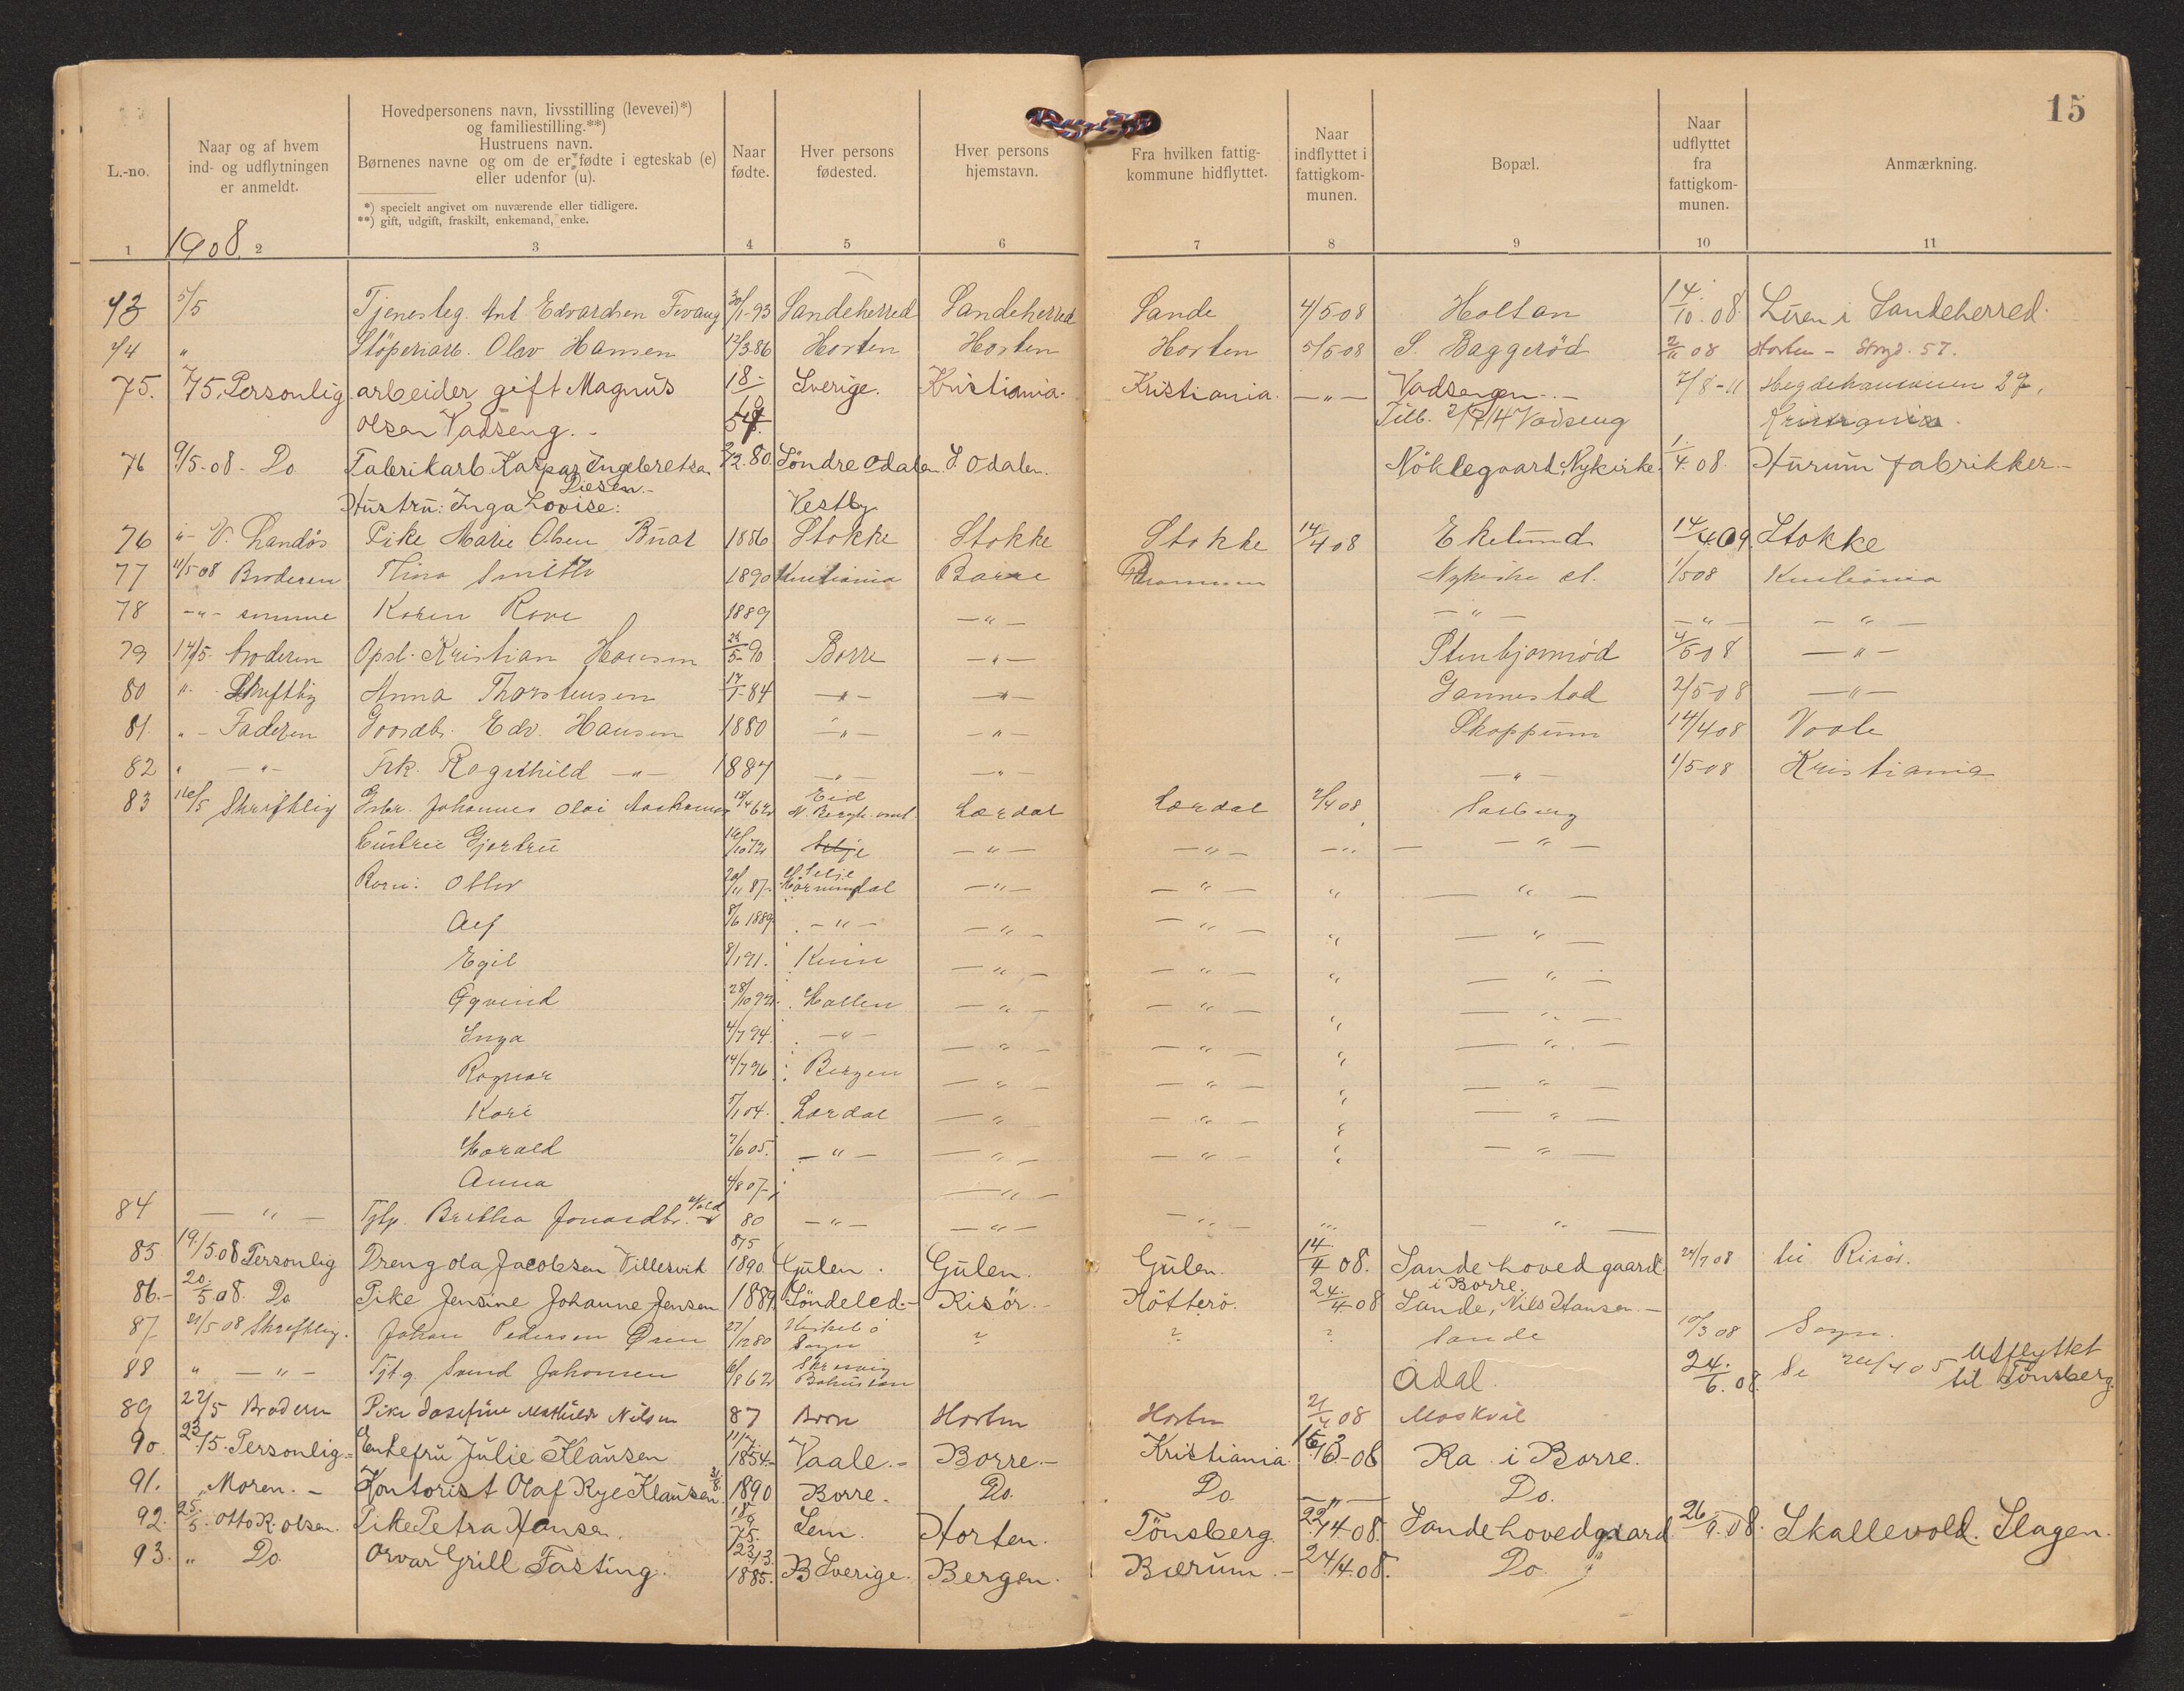 15
L.-no.
Naar og af hvem ind- og udflytningen er anmeldt.
Hovedpersonens navn, livsstilling (levevei)*) og familiestilling.**) Hustruens navn. Børnenes navne og om de er fødte i egteskab (e) eller udenfor (u).
*) specielt angivet om nuværende eller tidligere.
**) gift, udgift, fraskilt, enkemand, enke.
Naar fødte.
Hver persons fødested.
Hver persons hjemstavn.
Fra hvilken fattigkommune hidflyttet.
Naar indflyttet i fattigkommunen.
Bopæl.
Naar udflyttet fra fattigkommunen.
Anmærkning.
1 1908. 2 3 4 5 6 7 8 9 10 11
5/5 Tjenesteg. Ant Edvardsen Fevang 30/1-93 Sandeherred Sandeherred Sande 4/5 08 Holtan 14/10.08 Sandeherred
" Støperiarb. Olav Hansen 12/3 86 Horten Horten Horten 5/5 08 S. Baggerød 2/11 08 Horten - 57.
75. 7/5. Personlig arbeider gift Magnus 18- Sverige. Kristiania. Kristiania. -"- Vadsengen 7/8-11
Olsen Vadseng. 54. Till. 2/7 14 Vadseng
76 9/5-08- Do Fabrikarb Kaspar Ingebretsen 80 Søndre Odalen S. Odalen. Nøklegaard, Nykirke. 1/4. 08. Hurum fabrikker.-
Diesen.-
Hustru: Inga Lovise: Vestby
76 "- V. Sandøs Pike Marie Olsen 1886 Stokke Stokke Stokke 14/4 08 Ekelund 14/4 09. Stokke
77 11/5 08 Broderen Smith 1890 Kristiania Borre Nykirke st. 1/5 08 Kristiania
78 -"- samme Karen Rove 1889 -"- -"- -"- -"-
79 14/5. broderen Opsl. Kristian Hansen 5-90 Borre -"- Stenbjonrød 4/5 08 -"-
80 ". Skriftlig Anna Thorstensen 17/1-84 -"- -"- Gannestad 2/5 08 -"-
81. "- Faderen Gaardbr. Edv. Hansen 1880 -"- -"- Skoppum 14/4 08 Vaale
82 " -"- Frk. Ragnhild -"- 1887 -"- -"- -"- 1/5 08 Kristiania
83 16/5 Skriftlig Gbr. Johannes Olai 18/4 62 Eid N. Bergh. amt Lærdal Lærdal 2/4 08 Solberg
Custru Gjertru 16/10 72 Selje -"- -"- -"- -"-
Born: Otlw 20/11 87- Selje Hornindal -"- -"- " -"-
Alf 8/6 1889 -"- -"- -"- " -"-
Egil 8/1 91. Kinn -"- -"- " -"-
Øyvind 28/10 92. Hallen -"- -"- " -"-
Inga 4/7 94. -"- -"- -"- " -"-
Ragnar 14/7 96 Bergen -"- -"- " -"-
Kari 5/1 04. Lærdal -"- -"- " -"-
Harald 7/6 05. -"- -"- -"- " -"-
Anna 4/8 07- -"-
84 -"- Tjtp. Brithe Jonasdtr. 80 -"- -"- -"- " -"-
85. 19./5.08 Personlig Dreng Ola Jacobsen Villesvik 8/5 1890 Gulen. Gulen. Gulen. 14/4 08. Sandehovedgaard 24/7 08 til Risør.
i Borre.
86.- 20/5 08. Do Pike Jensine Johanne Jensen 1889. Søndeled.- Risør.- Nøtterø. 24./4-08 Sande, Nils Hansen.-
87 21/5 08 Skriftlig. Johan Pedersen Øren 27/12 80 Sogn ? ? ? Sande 10/3 08 Sogn.
88 " -"- Tjtg. Svend Johansen 6/8 62 Bohuslen Adal. 24./6. 08. Se 24/4 05 Utflyttet
til Tønsberg.
89 22/5 Broderen Pike Josefine Mathilde Nilsen 87 Borre Horten Horten 21/4 08 Moskvil
90. 23/5. Personlig= Enkefru Julie Klausen 11/7. 1854.- Vaale.- Borre.- Kristiania -08 Ra i Borre.
91. " Moren.- Kontorist Olaf Rye Klausen 1890 Borre. Do. Do. -"- Do.
92. 25./5. Otto R. Olsen. Pike Petra Hansen. 18/9 75. Lem. Horten. Tønsberg 22/4 08. Sandehovedgaard 26/9. 08. Skallevold. Slagen.
93. " Do. Orvar Grill Fasting. 23/3. 1885. Sverige. Bergen. Bærum.- 24/4.08. Do "